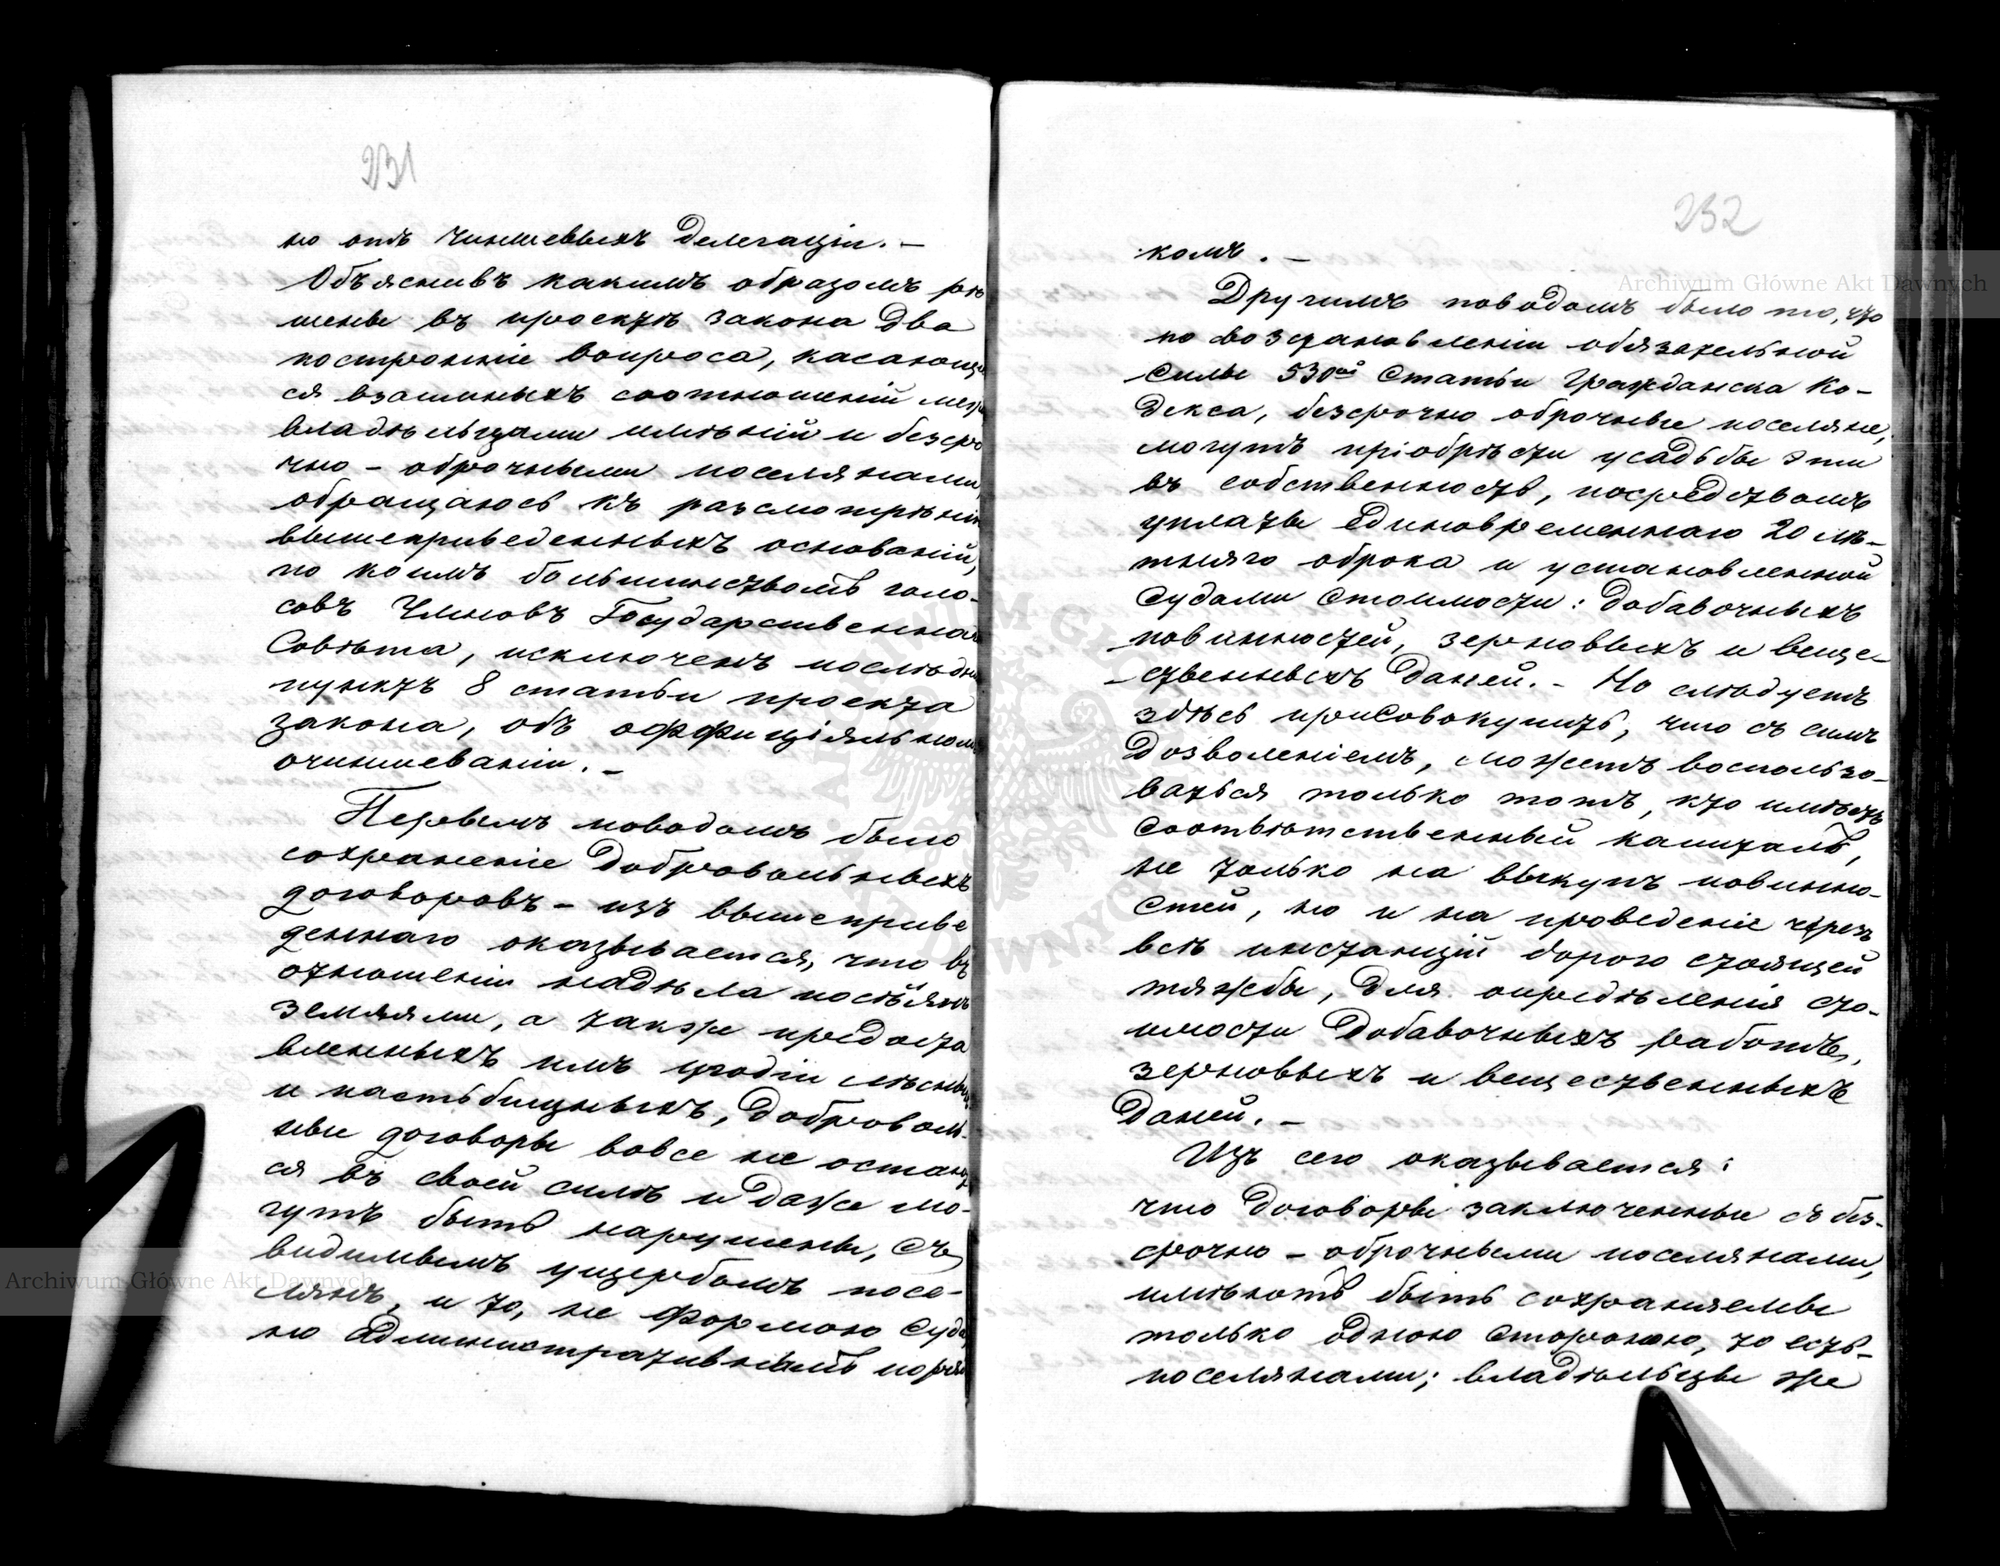 231
но отъ Чиншевыхъ Делегаціи. —
Объяснивъ какимъ образомъ рѣ
шены въ проектѣ закона два
постронніе вопроса, касающі
ся взаимныхъ соотношеній меж
владѣльцами имѣній и безсро
чно - оброчными поселянами,
обращаюсь къ разсмотрѣнію
вышеприведенныхъ основаній,
по коимъ большинствомъ голо-
совъ Членовъ Государственнаго
Совѣта, исключенъ послѣдній
пунктъ 8 статьи проекта
закона, объ оффиціяльномъ
очиншеваніи. —
Первымъ поводомъ было
сохраненіе добровольныхъ
договоровъ - изъ вышеприве
деннаго оказывается, что въ
отношеніи надѣла поселянъ
землями, а также предоста
вленныхъ имъ угодій лѣсныхъ
и пастьбищныхъ, доброволь-
ные договоры вовсе не остаю
ся въ своей силѣ и даже мо-
гутъ быть нарушены, съ
видимымъ ущербомъ посе-
лянъ, и то, не формою суда,
но административнымъ поряд
232
комъ. —
Другимъ поводомъ было то, что
по возстановленіи обязательной
силы 530ой Статьи Гражданска Ко-
декса, безсрочно оброчные поселяне,
могутъ пріобрѣсти усадьбы эти
въ собственность, посредствомъ
уплаты единовременнаго 20 лѣ-
тняго оброка и установленной
Судами Стоимости: добавочныхъ
повинностей, зерновыхъ и веще-
ственныхъ даней. - Но слѣдуетъ
здѣсь присовокупить, что съ симъ
дозволеніемъ, можетъ воспользо-
ваться только тотъ, кто имѣетъ
соотвѣтственный капиталъ,
не только на выкупъ повинно-
стей, но и на проведеніе чрезъ
всѣ инстанціи дорого стоящей
тяжбы, для опредѣленія сто-
имости добавочныхъ работъ,
зерновыхъ и вещественныхъ
даней. —
Изъ сего оказывается:
что договоры заключенные съ без-
срочно - оброчными поселянами,
имѣютъ быть сохраняемы
только одною стороною, то есть-
поселянами; владѣльцы же
Archiwum Główne Akt Dawnych
Archiwum Główne Akt Dawnych
ARCHIWUM GŁÓWNE AKT DAWNYCH